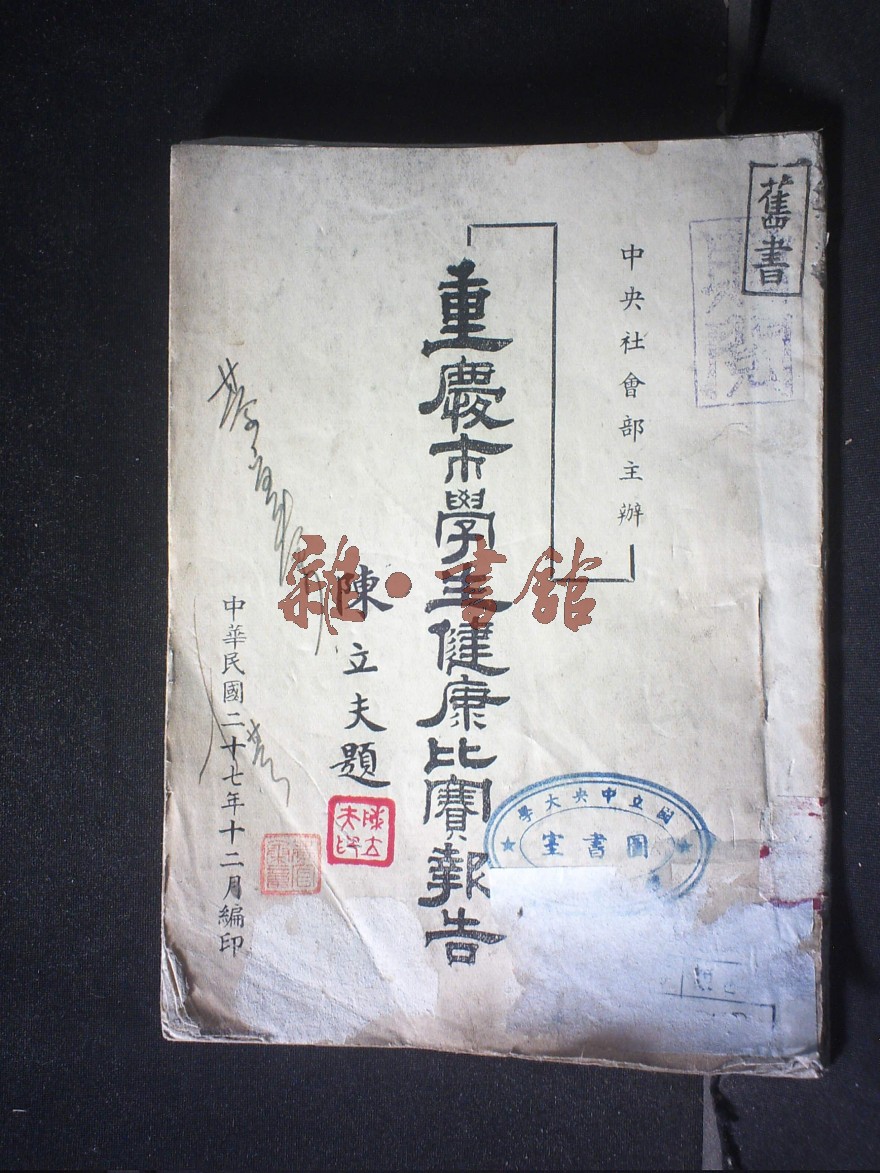 舊書
中央社會部主辦
重慶市學生健康比賽報告
陳立夫題
陳立夫印
中華民國二十七年十二月編印
國立中央大學
圖書室
雜·書館